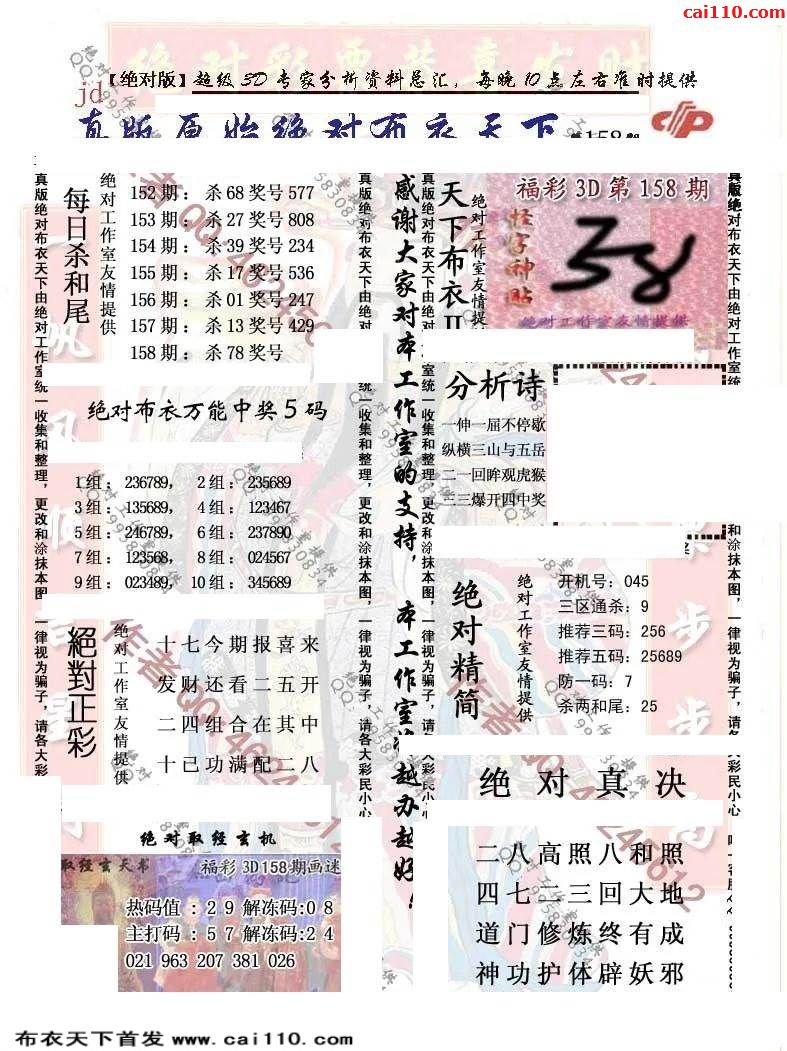 cai110.com
【绝对版】超级3D专家分析资料总汇，每晚10点左右准时提供
jd
真版原始绝对布衣天下
每日杀和尾
绝对工作室友情提供
152期：杀68奖号577
153期：杀27奖号808
154期：杀39奖号234
155期：杀17奖号536
156期：杀01奖号247
157期：杀13奖号429
158期：杀78奖号
绝对布衣万能中奖5码
1组：236789，2组：235689
3组：135689，4组：123467
5组：246789，6组：237890
7组：123568，8组：024567
9组：023489，10组：345689
絕對正彩
绝对工作室友情提供
十七今期报喜来
发财还看二五开
二四组合在其中
十己功满配二八
绝对取经玄机
取经玄天书
福彩3D158期画迷
热码值：29解冻码:08
主打码：57解冻码:24
021 963 207 381 026
真版绝对布衣天下由绝对工作室统一收集和整理，更改和涂抹本图，一律视为骗子，请各大彩民小心
感谢大家对本工作室的支持，本工作室将越办越好！
天下布衣II
绝对工作室友情提
福彩3D第158期
怪字神贴
绝对工作室友情提供
分析诗
一伸一屈不停歇
纵横三山与五岳
二一回眸观虎猴
二三爆开四中奖
绝对精简
绝对工作室友情提供
开机号：045
三区通杀：9
推荐三码：256
推荐五码：25689
防一码：7
杀两和尾：25
绝对真决
二八高照八和照
四七二三回大地
道门修炼终有成
神功护体辟妖邪
布衣天下首发 www.cai110.com